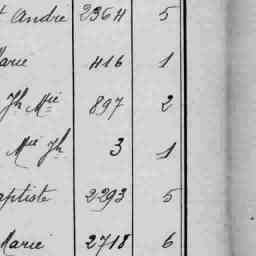 t André 2364 5
Marie 416 1
Jh Mie 897 2
Mie Jh 3 1
aptiste 2293 5
Marie 2718 6